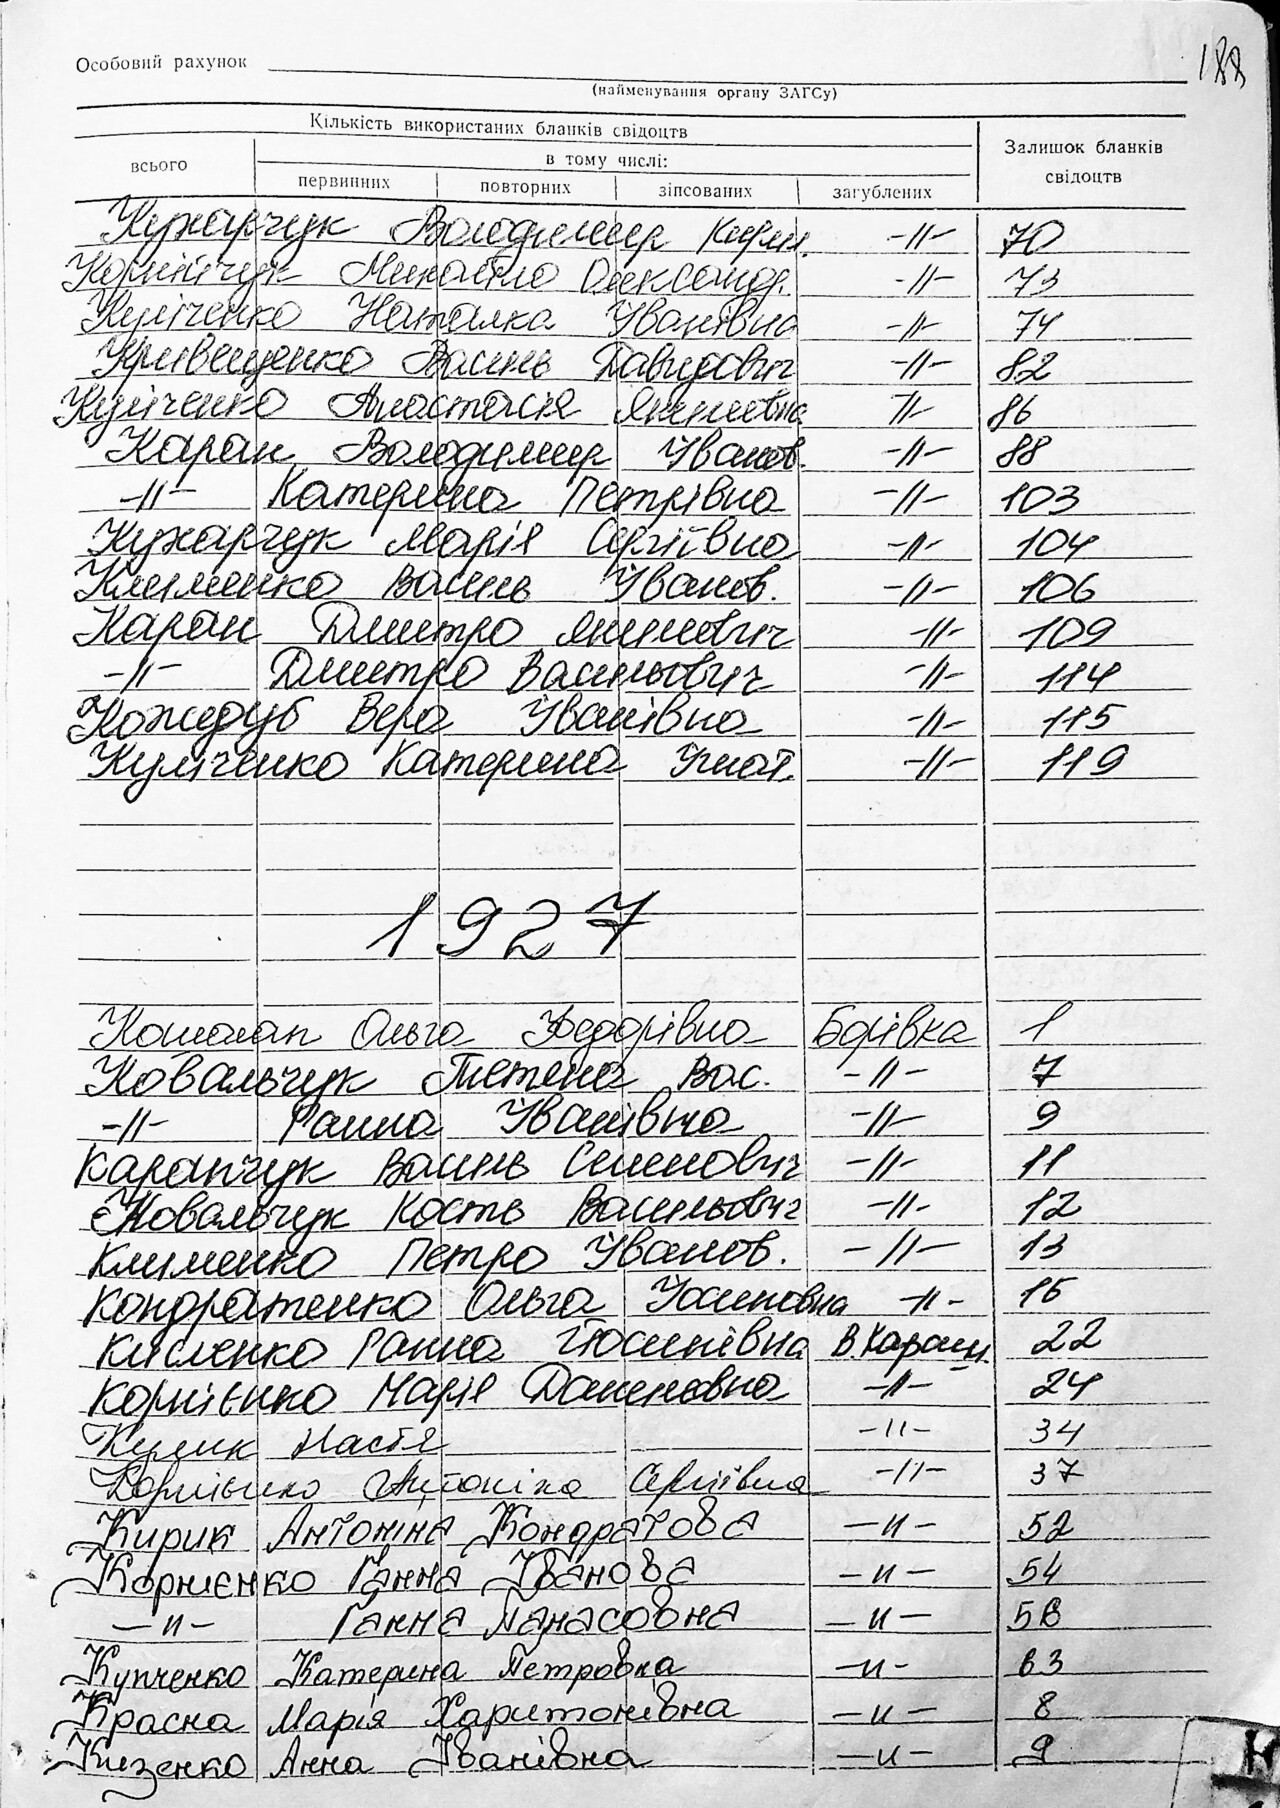 188
Особовий рахунок
(найменування органу ЗАГСу)
Кількість використаних бланків свідоцтв
Залишок бланків свідоцтв
всього
в тому числі:
первинних повторних зіпсованих загублених
Кухарчук Володимир Кирил. -//- 70
Корнійчук Михайло Олександ. -//- 73
Куліченко Наталка Іванівна -//- 74
Кривещенко Василь Давидович -//- 82
Куліченко Анастасія Якимівна -//- 86
Каран Володимир Іванов. -//- 88
-//- Катерина Петрівна -//- 103
Кухарчук Марія Сергіївна -//- 104
Клименко Василь Іванов. -//- 106
Каран Дмитро Якимович -//- 109
-//- Дмитро Васильович -//- 114
Кожедуб Вера Іванівна -//- 115
Куліченко Катерина Ігнат. -//- 119
1927
Ольга Федорівна Борівка 1
Ковальчук Тетяна Вас. -//- 7
-//- Ганна Іванівна -//- 9
Карапчук Василь Семенович -//- 11
Ковальчук Кость Васильович -//- 12
Клименко Петро Іванов. -//- 13
Кондратенко Ольга -//- 15
Кисленко Ганна Йосипівна В.Караш. 22
Корнієнко Марія -//- 24
Кулик Настя -//- 34
Корнієнко Антоніна Сергіївна -//- 37
Кирик Антоніна Кондратова -//- 52
Корнієнко Ганна Іванова -//- 54
-//- Ганна Панасовна -//- 58
Купченко Катерина Петровна -//- 63
Красна Марія Харитонівна -//- 8
Кизенко Анна Іванівна -//- 9